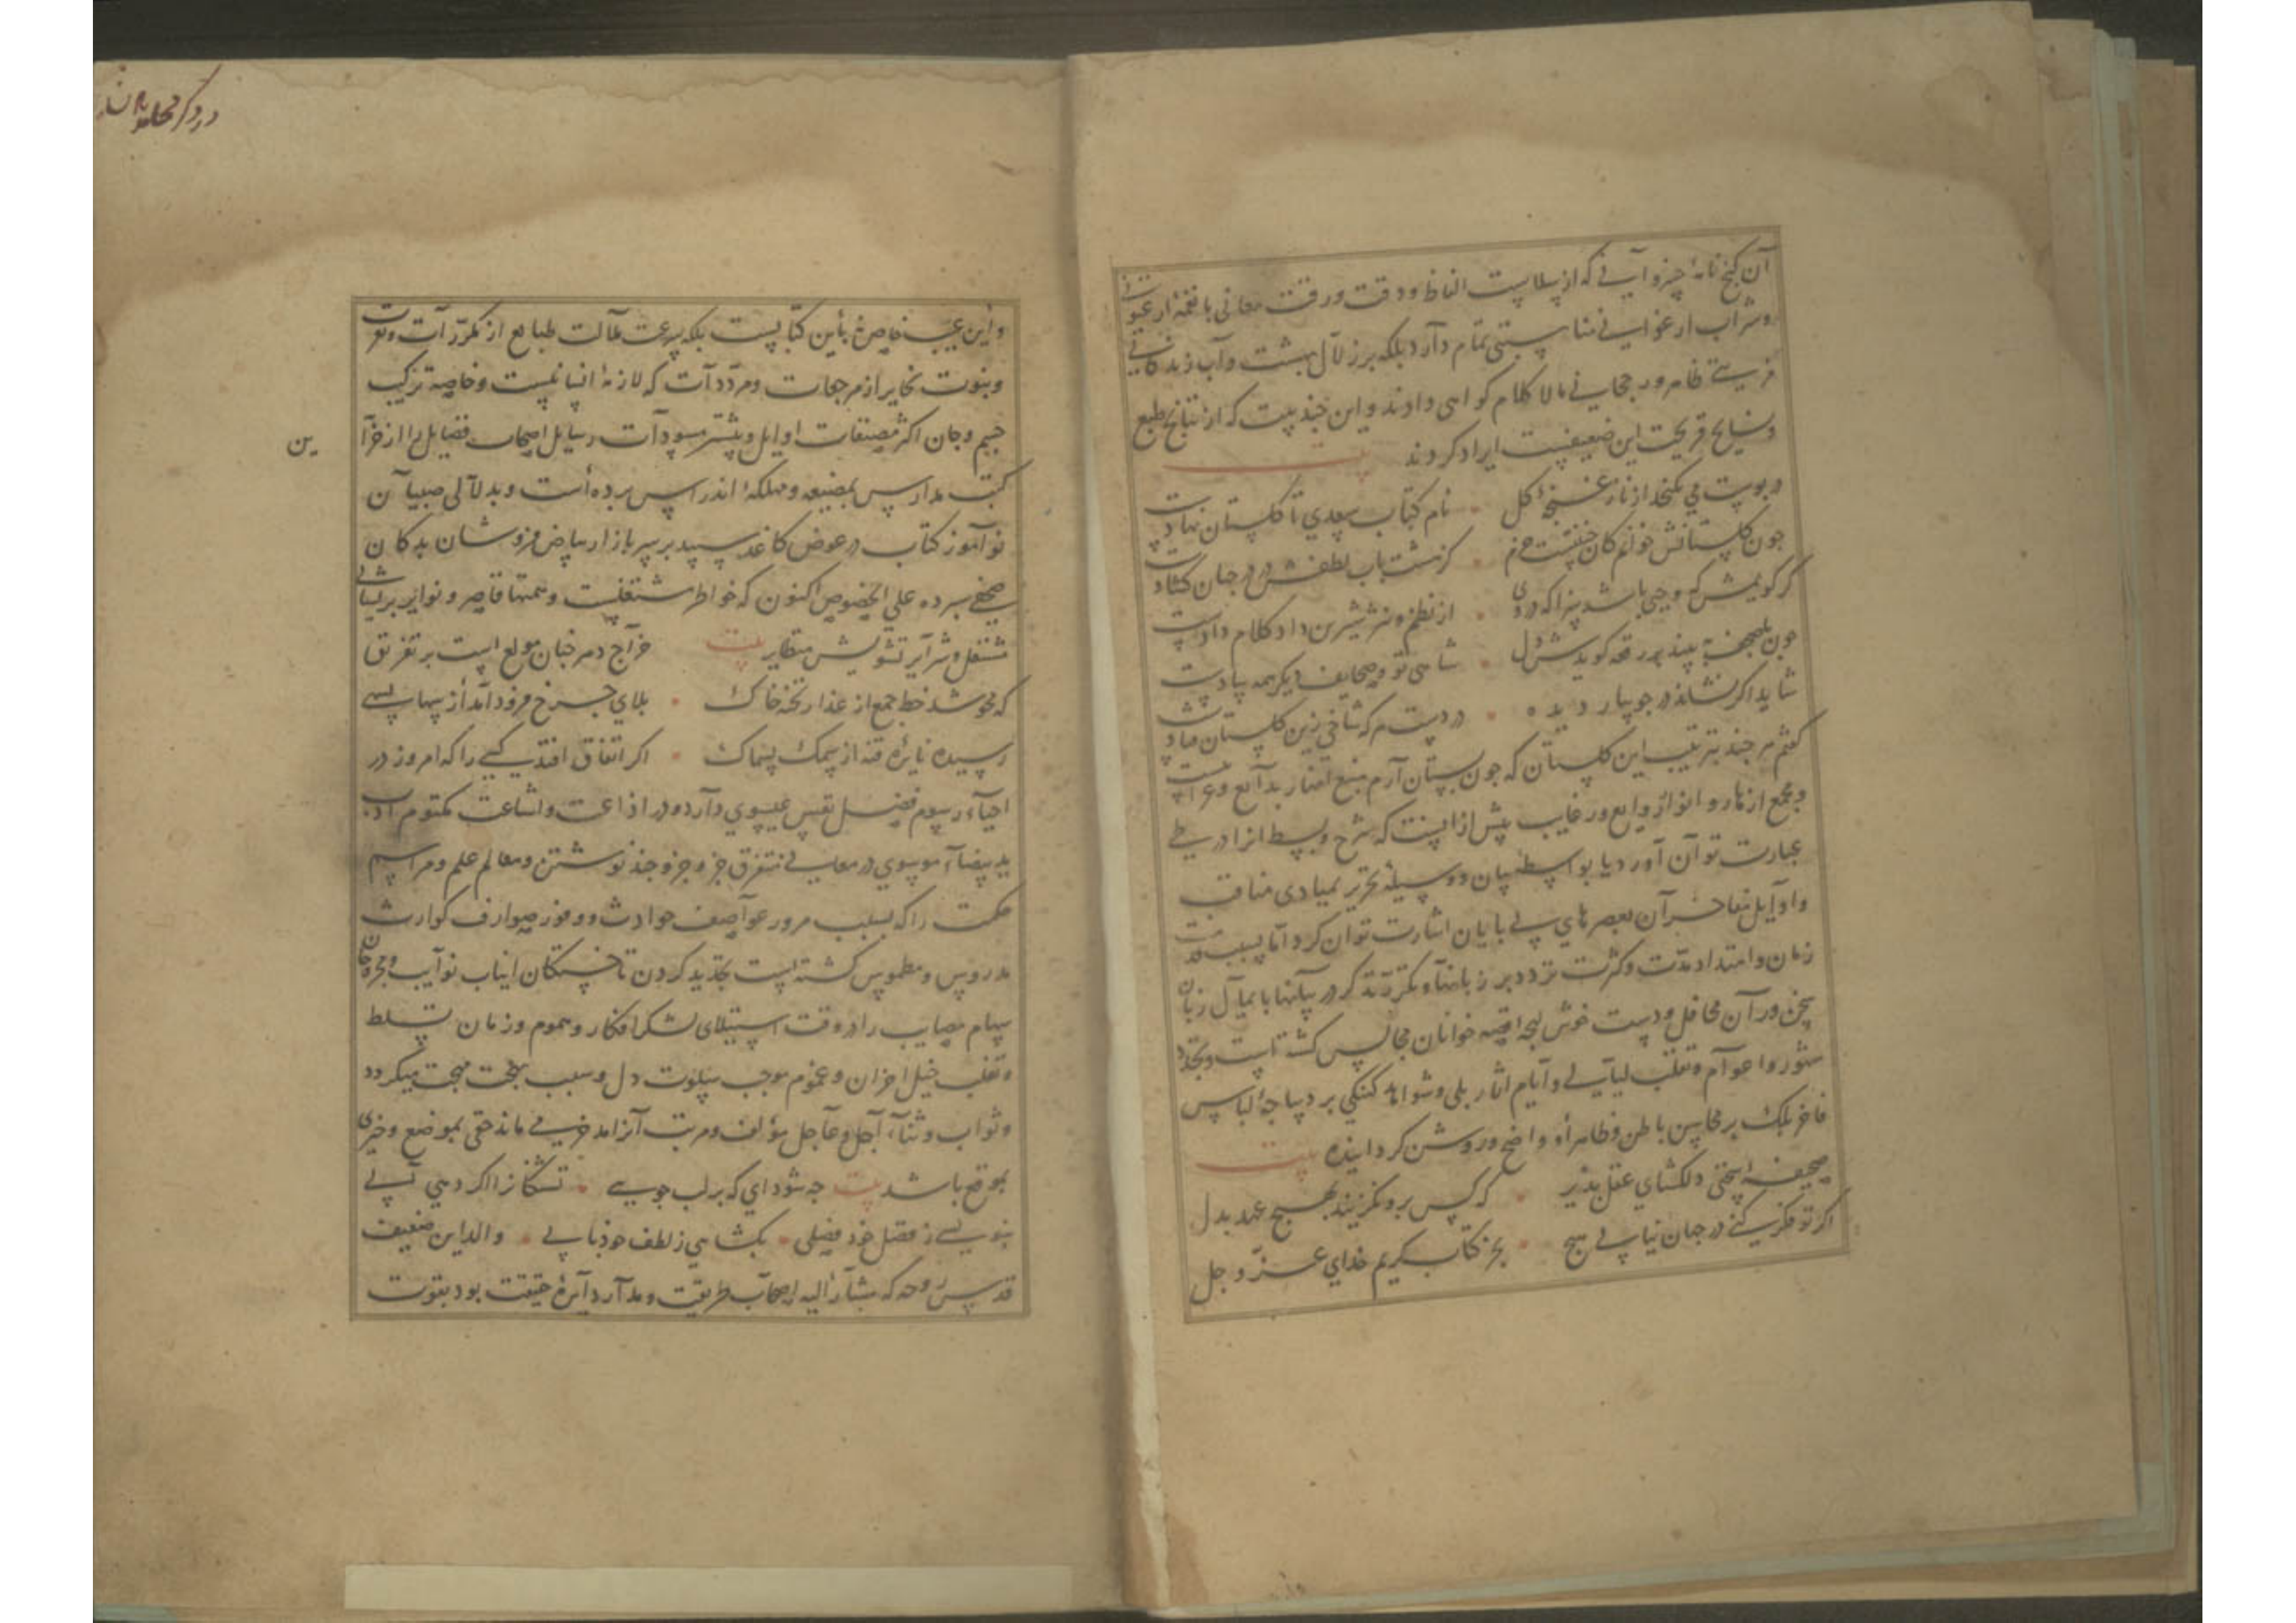 آن کنج نامهٔ چیز و آنی که از سلاست الفاظ و دقت و رقت معانی با نغمهٔ ارغنونی
و شراب ارغوانی مناسبتی تمام دارد بلکه بر زلال بهشت و آب زندکانی
مزیتی ظاهر و رجحانی مالا کلام کواهی دادند و این چند بیت که از نتایج طبع
و نسایج قریحت این ضعیفست ایراد کردند بیت
در پوست می نکنجد از ناز غنچهٔ کل نام کتاب سعدی تا کلستان نهادست
چون کلستانش خوانم کان جنتست خرم کز هشت باب لطفش در در جهان کشادست
کر کویمش که وحیی باشد سزا که دروی از نظم و نثر شیرین داد کلام دادست
چون مصحف به بیند بدرقه کوید ش دل شاهی تو و صحایف دیکر همه پیادست
شاید اکر نشاند در جویبار دیده در دست هر که شاخی زین کلستان فتادست
کفتم هر چند ترتیب این کلستان که چون بستان ارم منبع انهار بدایع و غرایبست
و مجمع ازهار و انوار روایع و رغایب بیش از انست که شرح و بسط آنرا در طی
عبارت توان آورد یا بواسطهٔ بیان و وسیلهٔ تحریر بمبادی مناقب
و اوایل مفاخر آن بعصرهای بی بایان اشارت توان کرد اما بسبب قدمت
زمان و امتداد مدت و کثرت تردد بر زبانها و تکرر تذکر در بیانها بایمال زبان
سخن وران محافل و دست خوش لهجه قصه خوانان مجالس کشته است و تجدد
شهور و اعوام و تقلب لیالی و ایام آثار بلی و شواهد کهنکی بر دیباجهٔ لباس
فاخر بلک بر محاسن باطن و ظاهر او واضح و روشن کردانیده بیت
صحیفهٔ سخنی دلکشای عقل بذیر که کس برو نکزیند بهیچ عهد بدل
اکر تو فکر کنی در جهان نیابی هیچ بجز کتاب کریم خدای عز و جل
و این عیب خاصهٔ باین کتاب نیست بلکه سرعت ملالت طبایع از مکررات و نفرت
و نبوت نحایر از مرجعات و مرددات که لازمهٔ انسانیست و خاصیة ترکیب
جسم و جان اکثر مصنفات اوایل و بیشتر مسودات رسایل اصحاب فضایل را از خزا
ین
کتب مدارس بمضیعه و مهلکهٔ اندراس برده است و بدلالی صبیان
نوآموز کتاب در عوض کاغذ سپید بر سر بازار بیاض فروشان بدکان
صحفی سپرده علی الخصوص اکنون که خواطر مشتغلست و همتها قاصر و نوایر برلیثانی
مشتعل و شرایر تشویش متطایر بیت خراج دهر خبان مولع است بر تفریق
که محو شد خط جمع از عذار تختهٔ خاک بلای چرخ فرود آمد از سها بسهی
رسیده نایرهٔ فتنه از سمک بسماک اکر اتفاق افتد کسی را که امروز در
احیاء رسوم فضل نفس عیسوی دارد و در اذاعت و اشاعت مکتوم ادب
ید بیضاء موسوی در معانی متفرق جزو جزو چند نوشتن و معالم علم و مراسم
حکمت را که بسبب مرور عواصف حوادث و وفور صوارف کوارث
مدروس و مطموس کشته است تجدید کردن تا خستکان انیاب نوایب و مجروحان
سهام مصایب را در وقت استیلای لشکر افکار و هموم و زمان تسلط
و تغلب خیل احزان و غموم موجب سلوت دل و سبب بهجت مهجت میکردد
و ثواب و ثناء آجل و عاجل مؤلف و مرتب آنرا مدخر می ماند حقی بموضع و خیری
بموقع باشد بیت چه شود ای که بر لب جویی تشنکانرا اکر دهی آبی
بنویسی ز فضل خود فصلی بکشایی ز لطف خود بابی والد این ضعیف
قدس روحه که مشار الیه اصحاب طریقت و مدار دایرهٔ حقیقت بود بقوت